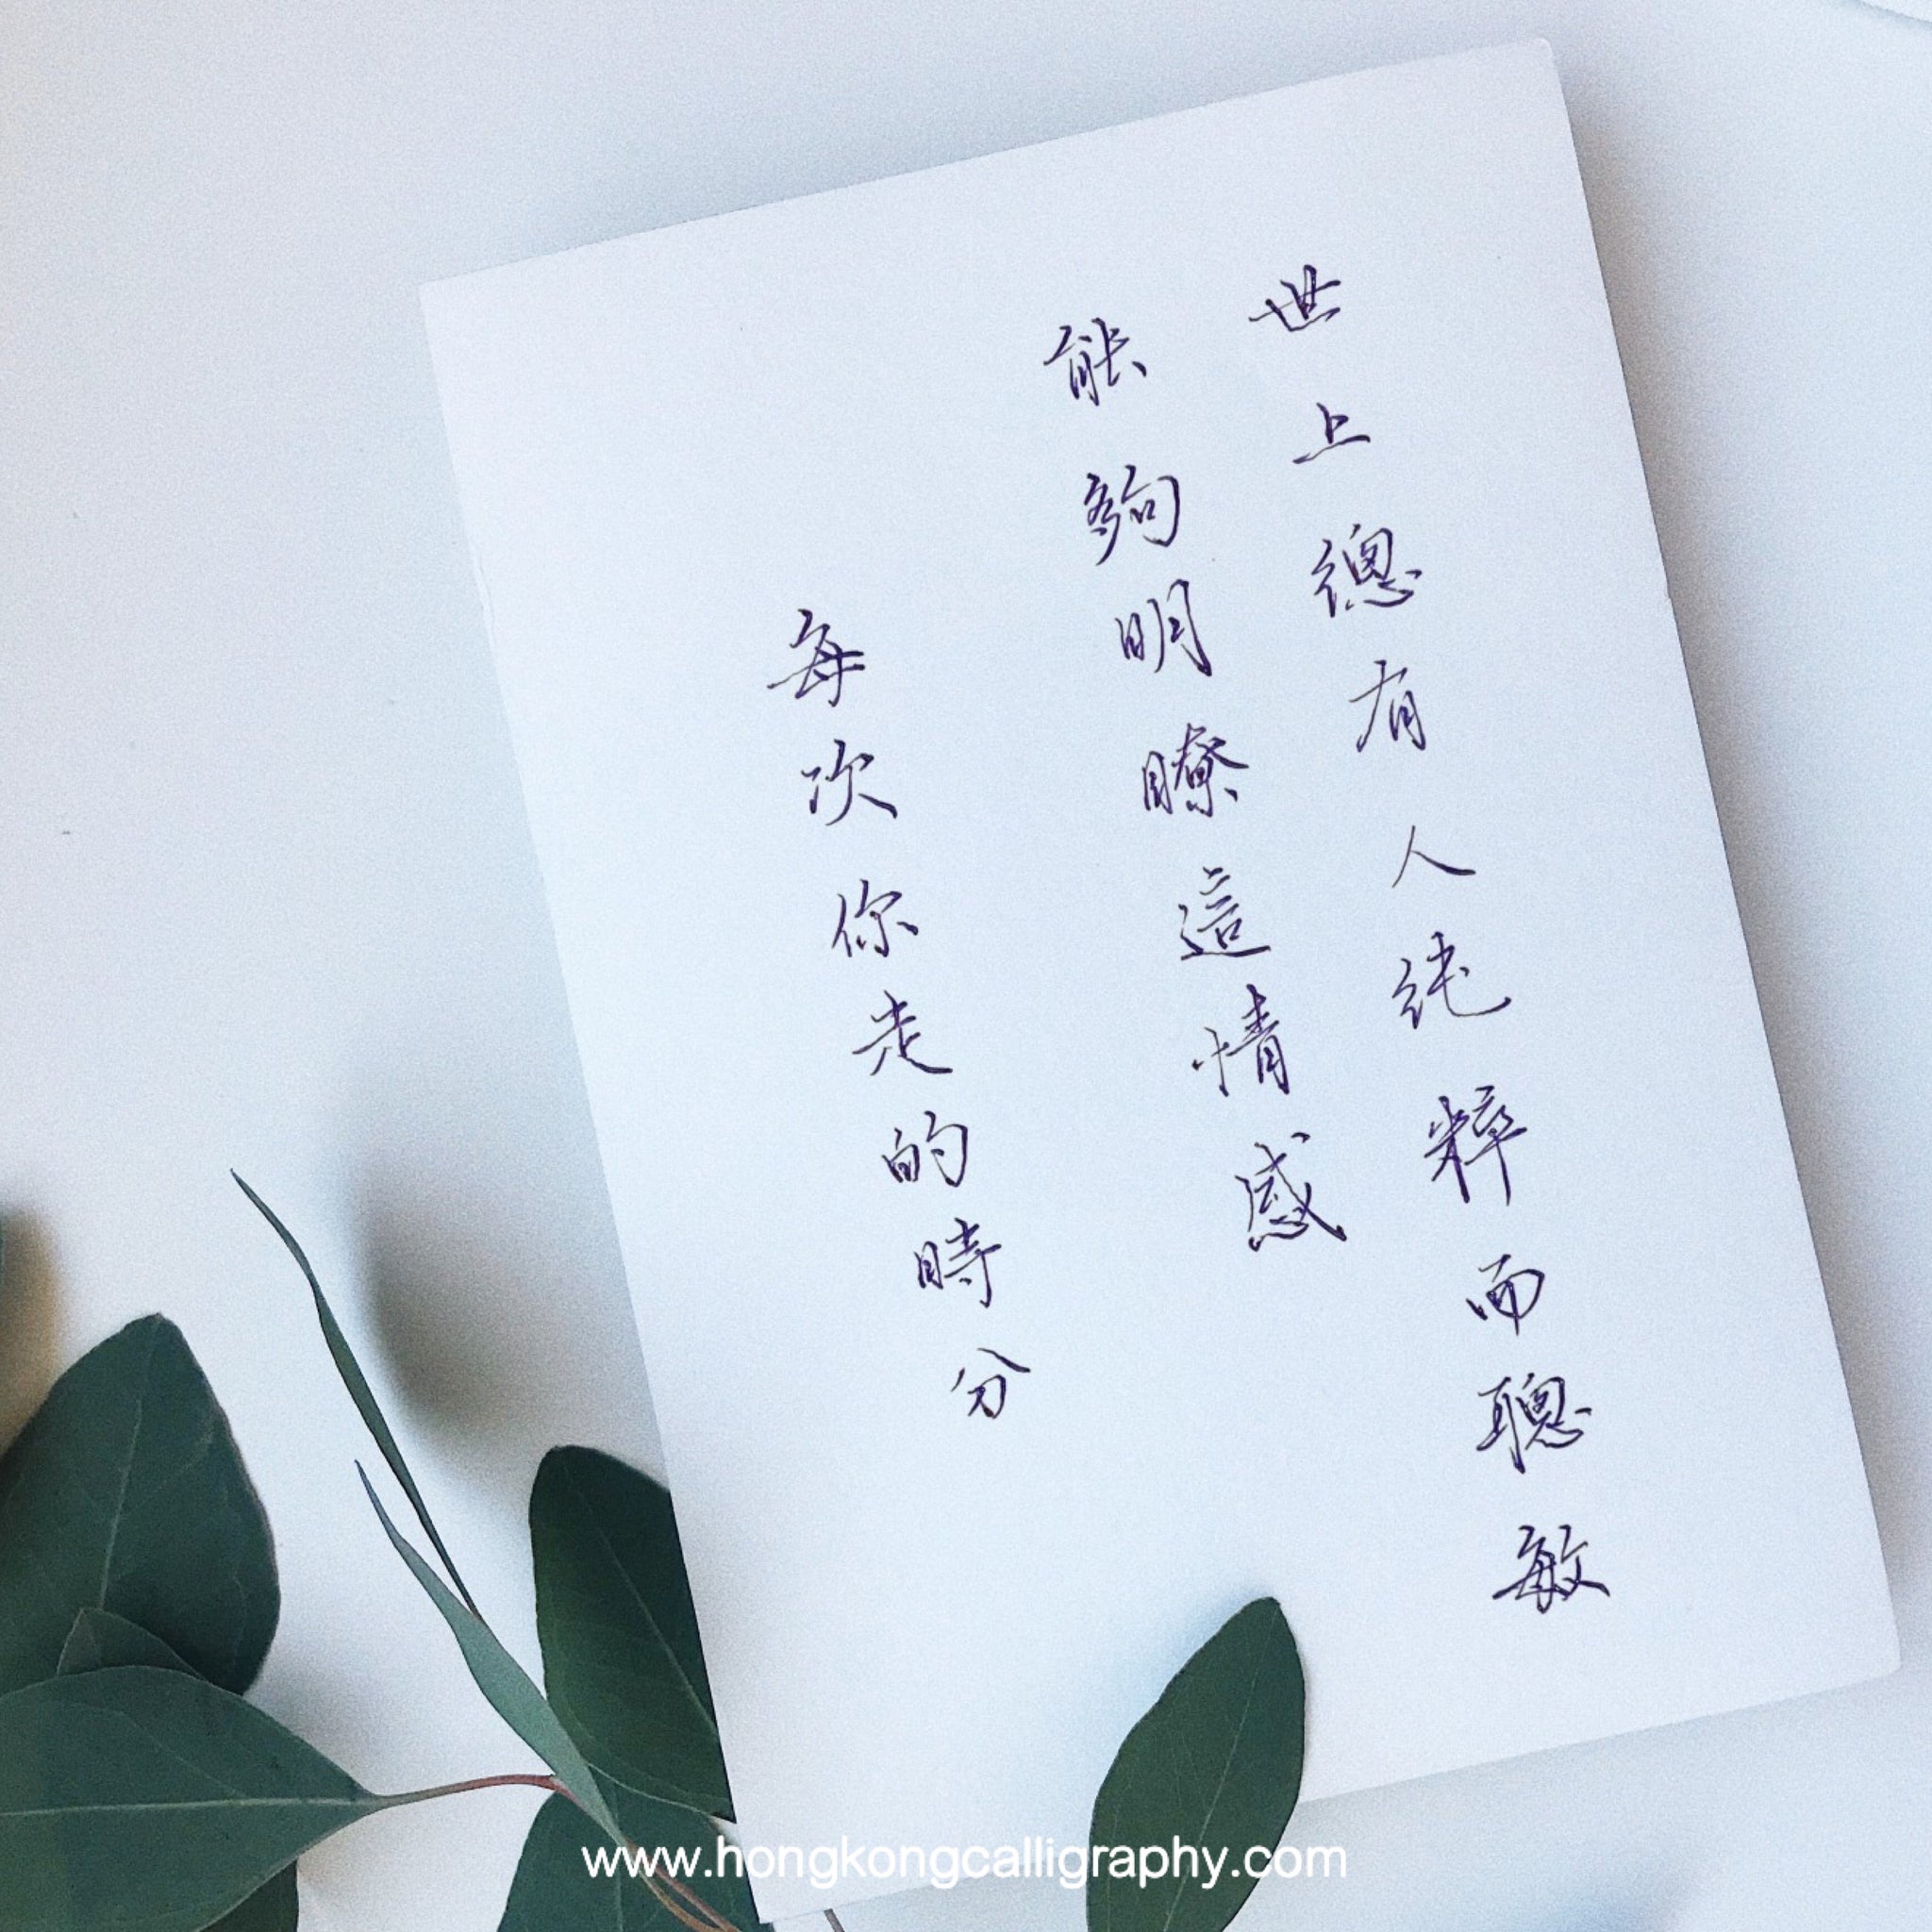 世上總有人純粹而聰敏
能夠明瞭這情感
每次你走的時分
www.hongkongcalligraphy.com